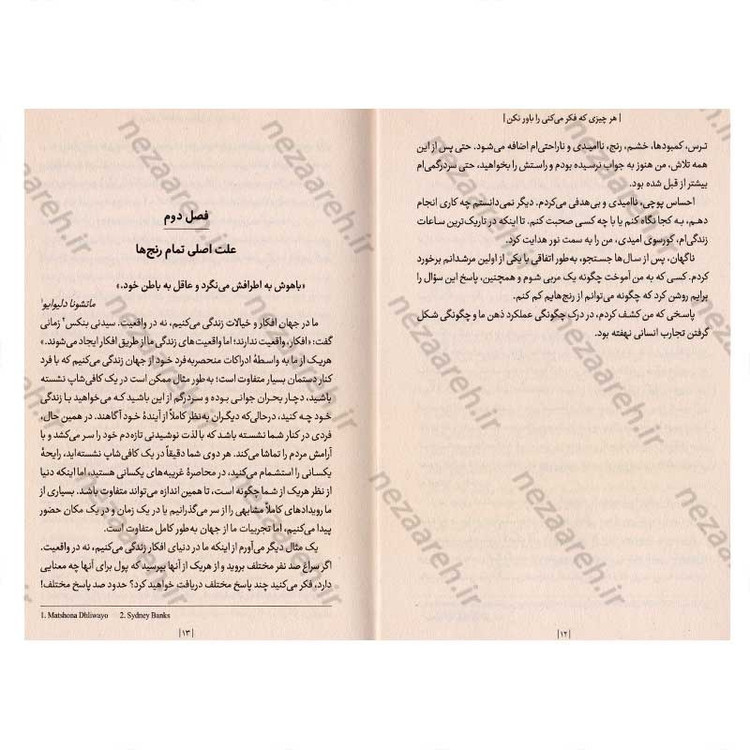 | هر چیزی که فکر می‌کنی را باور نکن |
ترس، کمبودها، خشم، رنج، ناامیدی و ناراحتی‌ام اضافه می‌شود. حتی پس از این
همه تلاش، من هنوز به جواب نرسیده بودم و راستش را بخواهید، حتی سردرگمی‌ام
بیشتر از قبل شده بود.
احساس پوچی، ناامیدی و بی‌هدفی می‌کردم. دیگر نمی‌دانستم چه کاری انجام
دهم، به کجا نگاه کنم یا با چه کسی صحبت کنم. تا اینکه در تاریک‌ترین ساعات
زندگی‌ام، کورسوی امیدی، من را به سمت نور هدایت کرد.
ناگهان، پس از سال‌ها جستجو، به‌طور اتفاقی با یکی از اولین مرشدانم برخورد
کردم. کسی که به من آموخت چگونه یک مربی شوم و همچنین، پاسخ این سؤال را
برایم روشن کرد که چگونه می‌توانم از رنج‌هایم کم کنم.
پاسخی که من کشف کردم، در درک چگونگی عملکرد ذهن ما و چگونگی شکل
گرفتن تجارب انسانی نهفته بود.
|۱۲|
فصل دوم
علت اصلی تمام رنج‌ها
«باهوش به اطرافش می‌نگرد و عاقل به باطن خود.»
ماتشونا دلیوایو۱
ما در جهان افکار و خیالات زندگی می‌کنیم، نه در واقعیت. سیدنی بنکس۲ زمانی
گفت: «افکار، واقعیت ندارند؛ اما واقعیت‌های زندگی ما از طریق افکار ایجاد می‌شوند.»
هریک از ما به واسطهٔ ادراکات منحصربه‌فرد خود از جهان زندگی می‌کنیم که با فرد
کنار دستمان بسیار متفاوت است؛ به‌طور مثال ممکن است در یک کافی‌شاپ نشسته
باشید، دچار بحران جوانی بوده و سردرگم از این باشید که می‌خواهید با زندگی
خود چه کنید، درحالی‌که دیگران به‌نظر کاملاً از آیندهٔ خود آگاهند. در همین حال،
فردی در کنار شما نشسته باشد که با لذت نوشیدنی تازه‌دم خود را سر می‌کشد و با
آرامش مردم را تماشا می‌کند. هر دوی شما دقیقاً در یک کافی‌شاپ نشسته‌اید، رایحهٔ
یکسانی را استشمام می‌کنید، در محاصرهٔ غریبه‌های یکسانی هستید، اما اینکه دنیا
از نظر هریک از شما چگونه است، تا همین اندازه می‌تواند متفاوت باشد. بسیاری از
ما رویدادهای کاملاً مشابهی را از سر می‌گذرانیم یا در یک زمان و در یک مکان حضور
پیدا می‌کنیم، اما تجربیات ما از جهان به‌طور کامل متفاوت است.
یک مثال دیگر می‌آورم از اینکه ما در دنیای افکار زندگی می‌کنیم، نه در واقعیت.
اگر سراغ صد نفر مختلف بروید و از هریک از آنها بپرسید که پول برای آنها چه معنایی
دارد، فکر می‌کنید چند پاسخ مختلف دریافت خواهید کرد؟ حدود صد پاسخ مختلف!
1. Matshona Dhliwayo 2. Sydney Banks
|۱۳|
nezaareh.ir
nezaareh.ir
nezaareh.ir
nezaareh.ir
nezaareh.ir
nezaareh.ir
nezaareh.ir
nezaareh.ir
nezaareh.ir
nezaareh.ir
nezaareh.ir
nezaareh.ir